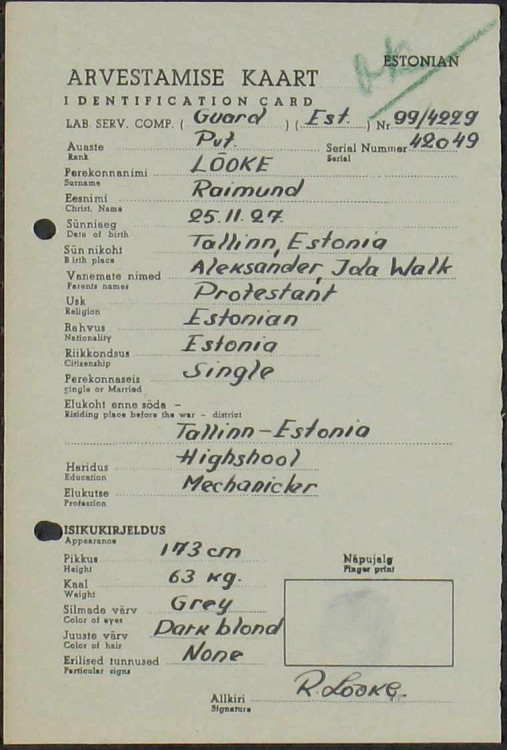 ok
ESTONIAN
ARVESTAMISE KAART
IDENTIFICATION CARD
LAB. SERV. COMP. ( Guard ) ( Est. ) Nr 99/4229
Auaste Pvt. Serial Nummer 42049
Rank Serial
Perekonnanimi LÕOKE
Surname
Eesnimi Raimund
Christ. Name
Sünniaeg 25.11.27.
Date of birth
Sün nikoht Tallinn, Estonia
Birth place
Vanemate nimed Aleksander, Ida Walk
Parents names
Usk Protestant
Religion
Rahvus Estonian
Nationality
Riikkondsus Estonia
Citizenship
Perekonnaseis Single
Single or Married
Elukoht enne sõda –
Risiding place before the war – district
Tallinn – Estonia
Haridus Highshool
Education
Elukutse Mechanicker
Profession
ISIKUKIRJELDUS
Appearance
Pikkus 173 cm
Height
Kaal 63 kg.
Weight
Silmade värv Grey
Color of eyes
Juuste värv Dark blond
Color of hair
Erilised tunnused None
Particular signs
Näpujalg
Finger print
Allkiri R. Lõoke.
Signature